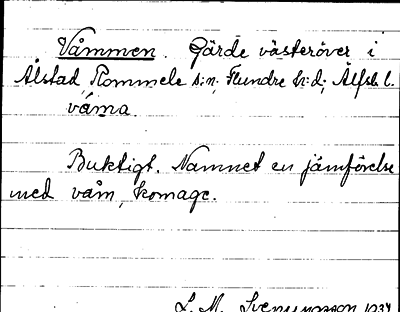 Våmmen. Gärde västeröver i
Ålstad Rommele s:n, Flundre h:d, Älfsb l.
våma.
Buktigt. Namnet en jämförelse
med våm, komage.
L. M. Svenungsson 1934